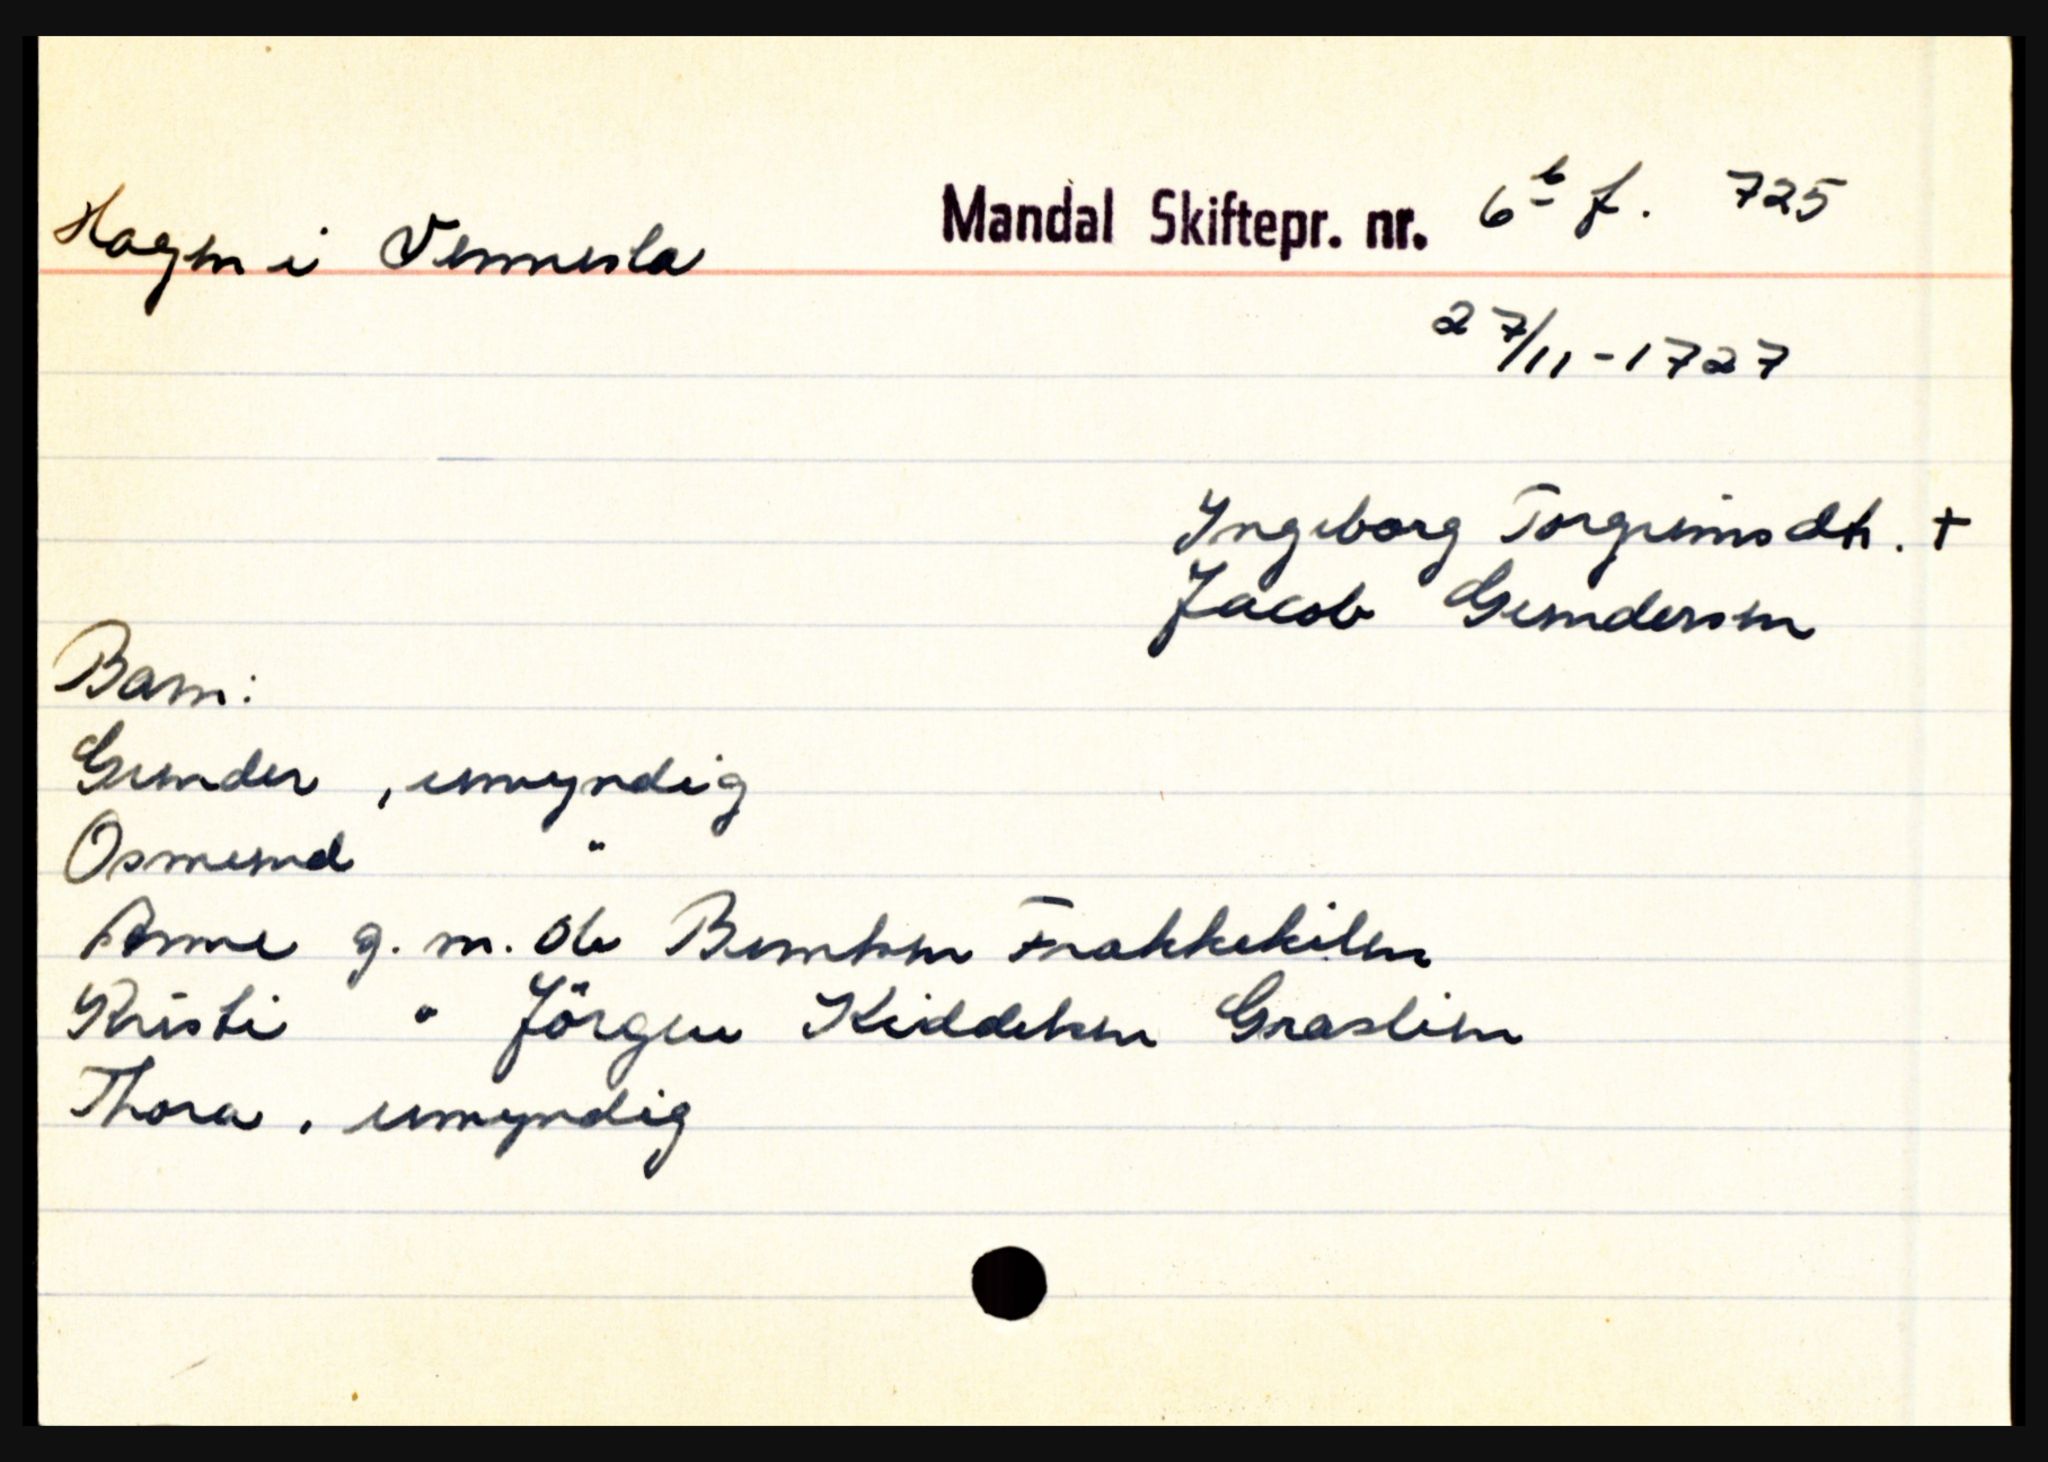 Hagen i Vennesla Mandal Skiftepr. nr. 6b f. 725
27/11-1727
Ingeborg Torgrimsdtr. +
Jacob Gundersen
Barn:
Gunder, umyndig
Osmund "
Anne g. m. Ole Bentsen Frakkekilen
Kristi " Jörgen Kiddelsen Graslien
Thora, umyndig